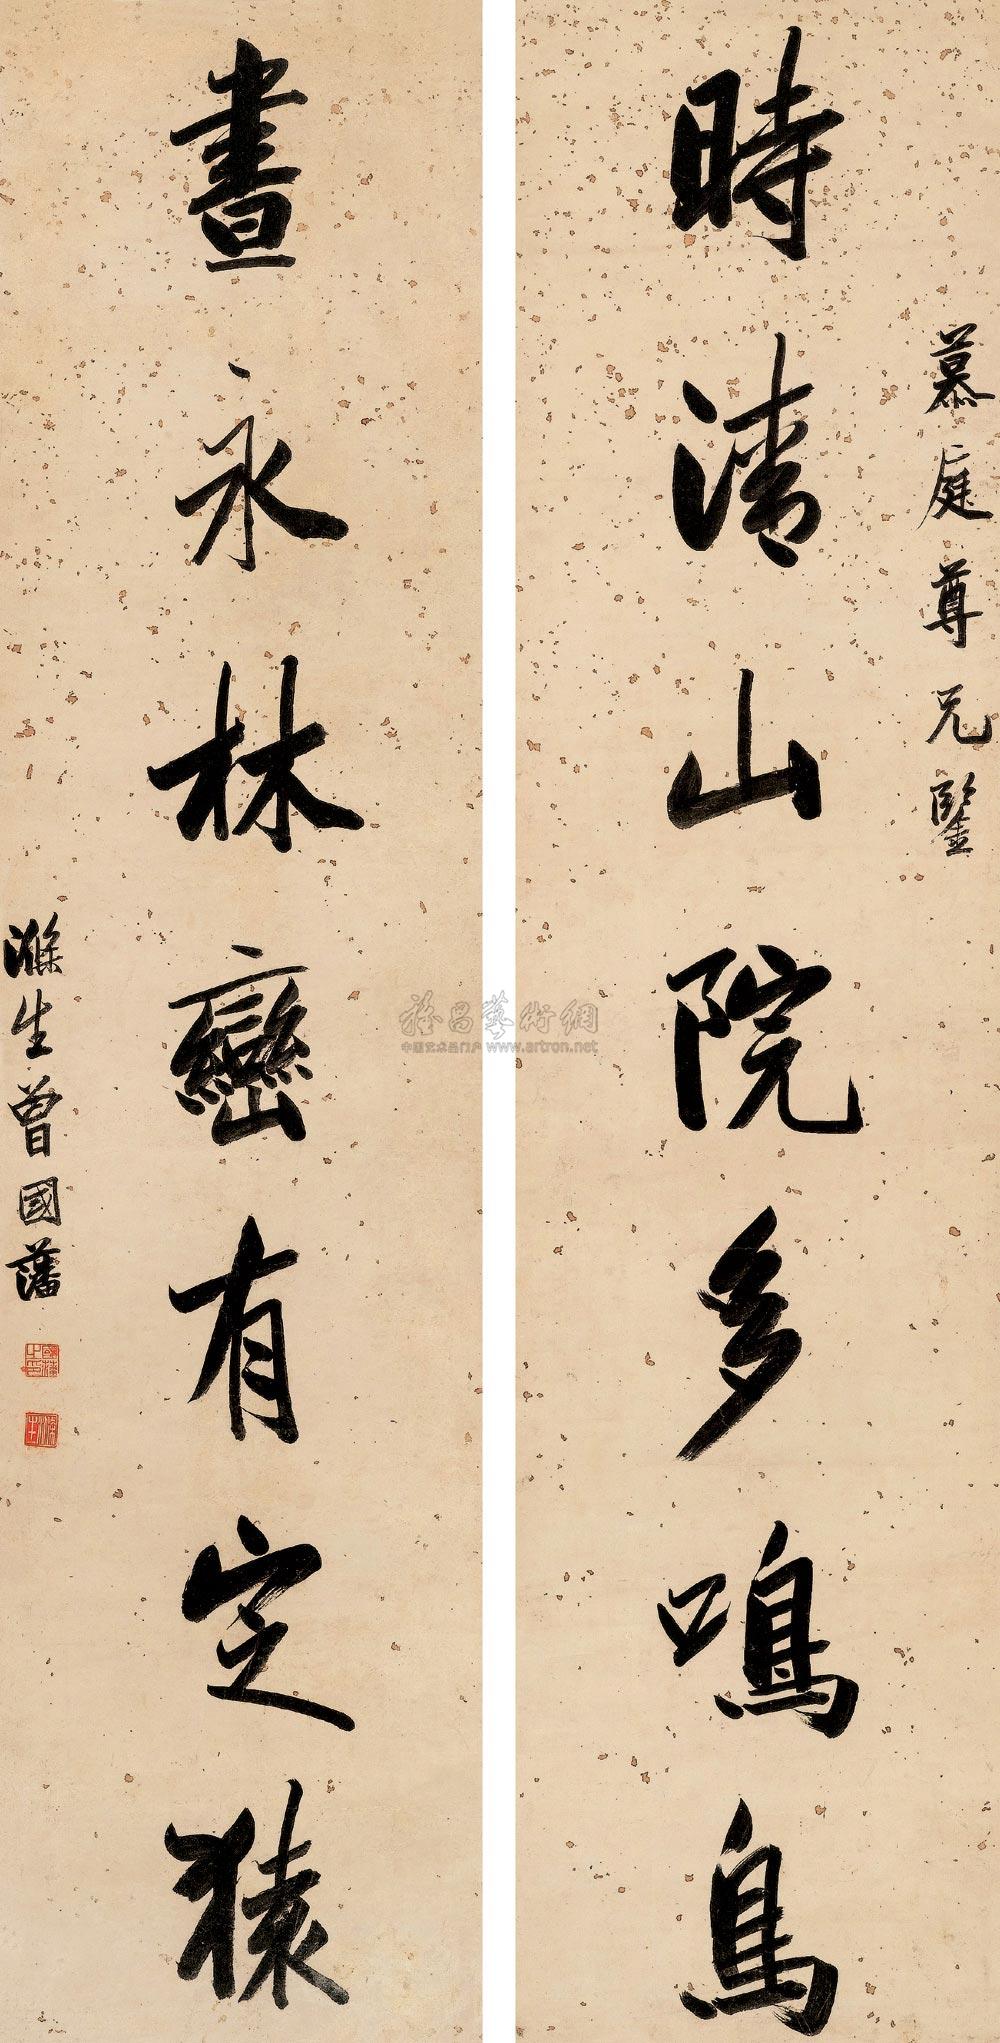 慕庭尊兄鑒
時清山院多鳴鳥
晝永林巒有定猿
滌生曾國藩
雅昌藝術網
中国艺术品门户 www.artron.net